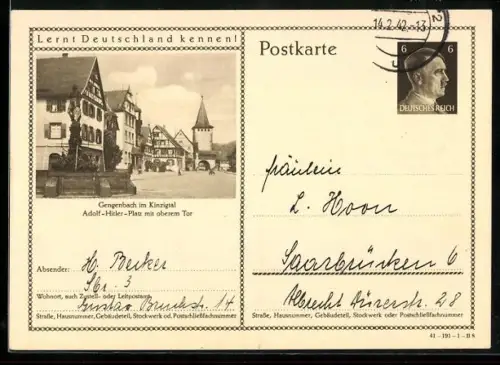 Lernt Deutschland kennen!
Gengenbach im Kinzigtal
Adolf-Hitler-Platz mit oberem Tor
Absender: H. Becker
Sbr. 3
Wohnort, auch Zustell- oder Leitpostamt
Gustav Bruchstr. 14
Straße, Hausnummer, Gebäudeteil, Stockwerk od. Postschließfachnummer
Postkarte
14.2.42.-13
6 6
DEUTSCHES REICH
Fräulein
L. Hoon
Saarbrücken 6
Albrecht Dürerstr. 28
Straße, Hausnummer, Gebäudeteil, Stockwerk oder Postschließfachnummer
41-191-1-B8